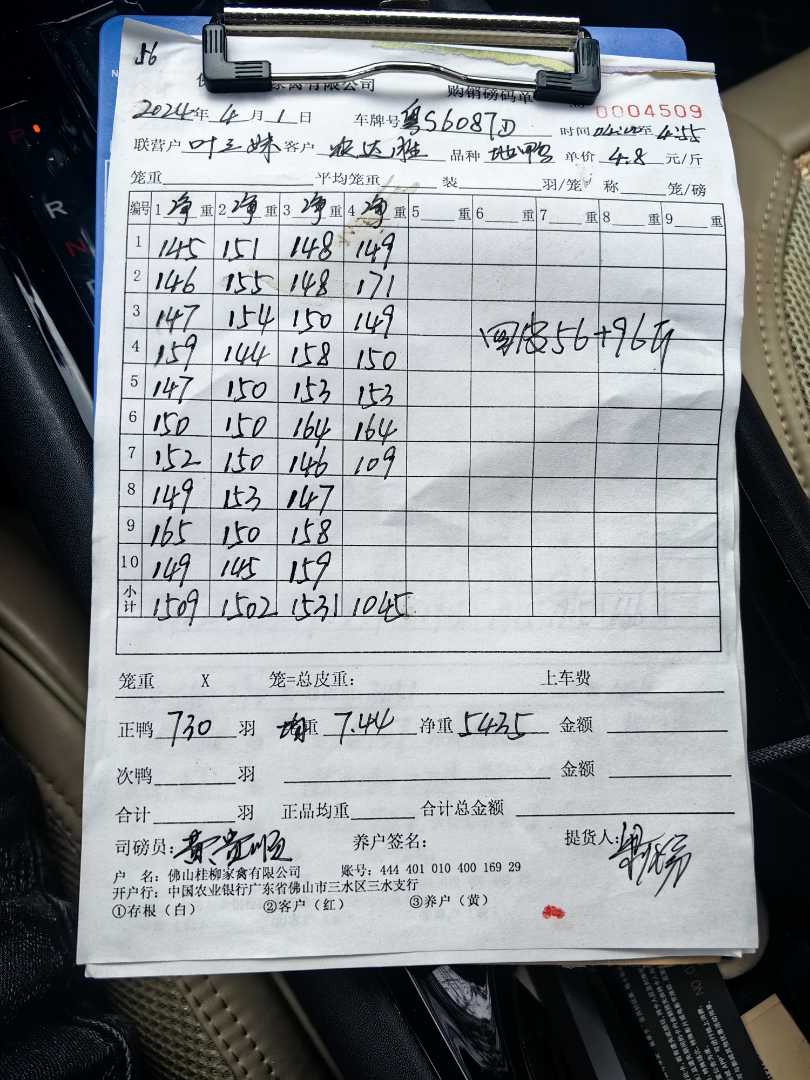 56
家禽有限公司 购销磅码单 0004509
2024年4月1日 车牌号粤S6087D 时间 至4:55
联营户叶三妹客户 品种 单价4.8元/斤
笼重 平均笼重 装 羽/笼 称 笼/磅
编号 1净重 2净重 3净重 4净重 5 重 6 重 7 重 8 重 9 重
1 145 151 148 149
2 146 155 148 171
3 147 154 150 149
4 159 144 158 150
回皮56+96
5 147 150 153 153
6 150 150 164 164
7 152 150 146 109
8 149 153 147
9 165 150 158
10 149 145 159
小计 1509 1502 1531 1045
笼重 X 笼=总皮重: 上车费
正鸭730羽 均重7.44 净重5435 金额
次鸭 羽 金额
合计 羽 正品均重 合计总金额
司磅员:黄贵顺 养户签名: 提货人:
户 名:佛山桂柳家禽有限公司 账号:444 401 010 400 169 29
开户行:中国农业银行广东省佛山市三水区三水支行
①存根(白) ②客户(红) ③养户(黄)
P
R
N